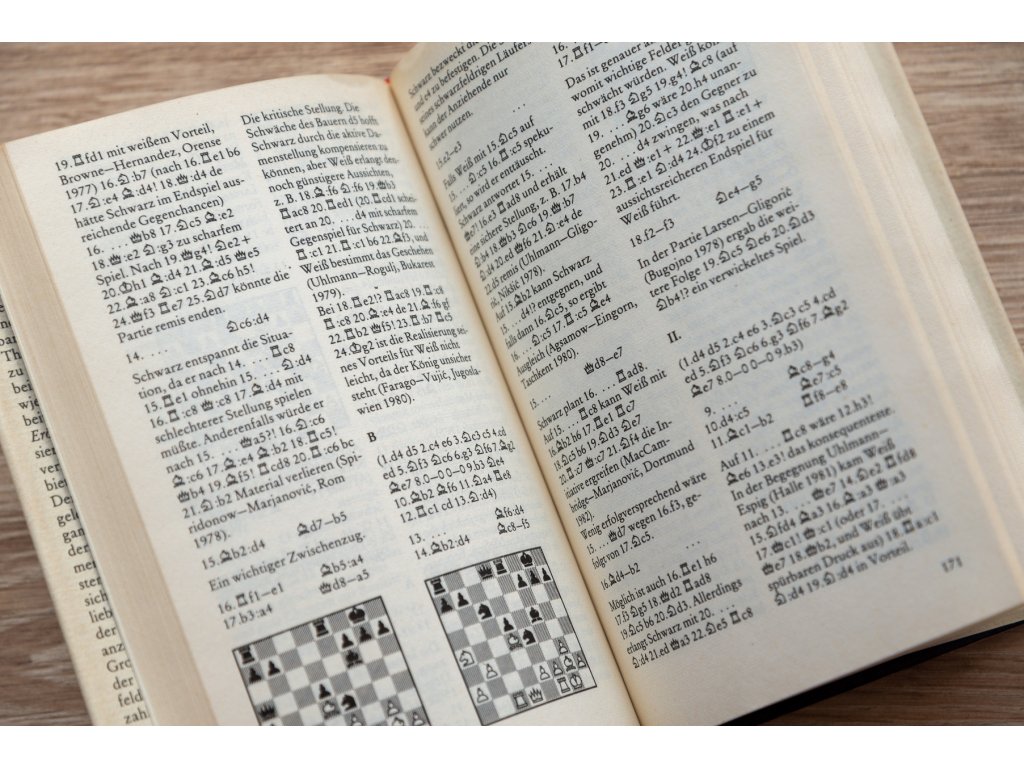 19.♖fd1 mit weißem Vorteil,
Browne—Hernandez, Orense
1977) 16.♘:b7 (nach 16.♖e1 b6
17.♘:e4 ♗:d4! 18.♕:d4 de
hätte Schwarz im Endspiel aus-
reichende Gegenchancen)
16. ... ♕b8 17.♘c5 ♗:e2
18.♕:e2 ♘:g3 zu scharfem
Spiel. Nach 19.♕g4! ♘e2+
20.♔h1 ♗:d4 21.♗:d5 ♕e5
22.♗:a8 ♘:c1 23.♗c6 h5!
24.♕f3 ♕e7 25.♘d7 könnte die
Partie remis enden.
14. .... ♘c6:d4
Schwarz entspannt die Situa-
tion, da er nach 14. .... ♖c8
15.♖e1 ohnehin 15. .... ♘:d4
16.♖:c8 ♕:c8 17.♗:d4 mit
schlechterer Stellung spielen
müßte. Anderenfalls würde er
nach 15. .... ♕a5?! 16.♘:c6
♗:c6 17.♗:e4 ♗:b2 18.♖c5!
♕b4 19.♗f5! ♖cd8 20.♖:c6 bc
21.♘:b2 Material verlieren (Spi-
ridonow—Marjanović, Rom
1978).
15.♗b2:d4 ♗d7—b5
Ein wichtiger Zwischenzug.
16.♖f1—e1 ♗b5:a4
17.b3:a4 ♕d8—a5
Die kritische Stellung. Die
Schwäche des Bauern d5 hofft
Schwarz durch die aktive Da-
menstellung kompensieren zu
können, aber Weiß erlangt den-
noch günstigere Aussichten,
z. B. 18.♗:f6 ♘:f6 19.♕b3
♖ac8 20.♖ed1 (20.♖cd1 schei-
tert an 20. .... d4 mit scharfem
Gegenspiel für Schwarz) 20. ...
♖:c1 21.♖:c1 b6 22.♗f3, und
Weiß bestimmt das Geschehen
(Uhlmann—Rogulj, Bukarest
1979).
Bei 18.♖e2!? ♖ac8 19.♖:c8
♖:c8 20.♗:e4 de 21.♗:f6 gf
22.♖b2 ♕f5! 23.♖:b7 ♖c5
24.♔g2 ist die Realisierung sei-
nes Vorteils für Weiß nicht
leicht, da der König unsicher
steht (Farago—Vujić, Jugosla-
wien 1980).
B
(1.d4 d5 2.c4 e6 3.♘c3 c5 4.cd
ed 5.♘f3 ♘c6 6.g3 ♘f6 7.♗g2
♗e7 8.0—0 0—0 9.b3 ♘e4
10.♗b2 ♗f6 11.♘a4 ♖e8
12.♖c1 cd 13.♘:d4)
13. .... ♗f6:d4
14.♗b2:d4 ♗c8—f5
Schwarz bezweckt
und e4 zu befestigen. Die
seines schwarzfeldrigen Läufers
kann der Anziehende nur
schwer nutzen.
15.f2—f3 ....
Falls Weiß mit 15.♘c5 auf
15. .... ♘:c5 16.♖:c5 speku-
liert, so wird er enttäuscht.
Schwarz antwortet 15. ....
♕e7! 16.e3 ♖ad8 und erhält
eine sichere Stellung, z. B. 17.b4
♘:b4 18.♕b3 ♘c6 19.♕:b7
♘:d4 20.ed ♕f6 21.♘:e4 de
22.d5 remis (Uhlmann—Gligo-
rić, Nikšić 1978).
Auf 15.♗b2 kann Schwarz
15. .... d4!? entgegnen, und
falls dann 16.♘c5, so ergibt
16. .... ♘:c5 17.♖:c5 ♗e4
Ausgleich (Agsamow—Eingorn,
Taschkent 1980).
15. .... ♕d8—e7
Schwarz plant 16. .... ♖ad8.
Auf 15. .... ♖c8 kann Weiß mit
16.♗b2 h6 17.♖e1 ♖c7
18.♘c5 b6 19.♘d3 ♘e7
20.♖:c7 ♕:c7 21.♘f4 die In-
itiative ergreifen (MacCam-
bridge—Marjanović, Dortmund
1982).
Wenig erfolgversprechend wäre
15. .... ♕d7 wegen 16.f3, ge-
folgt von 17.♘c5.
16.♗d4—b2
Möglich ist auch 16.♖e1 h6
17.f3 ♘g5 18.♕d2 ♖ad8
19.♘c5 b6 20.♘d3. Allerdings
erlangt Schwarz mit 20. ....
♘:d4 21.ed ♕a3 22.♘e5 ♖c8
16.
17.♖f1—
Das ist genauer a
womit wichtige Felder
schwächt würden. Weiß kon
mit 18.f3 ♘g5 19.g4! ♗c8 (auf
19. .... ♗:g6 wäre 20.h4 unan-
genehm) 20.♘c3 den Gegner zu
20. .... d4 zwingen, was nach
21.ed ♕:e1+ 22.♕:e1 ♖:e1+
23.♖:e1 ♘:d4 24.♔f2 zu einem
aussichtsreichen Endspiel für
Weiß führt.
18.f2—f3 ♘e4—g5
In der Partie Larsen—Gligorić
(Bugojno 1978) ergab die wei-
tere Folge 19.♘c5 ♘e6 20.♘d3
♘b4!? ein verwickeltes Spiel.
II.
(1.d4 d5 2.c4 e6 3.♘c3 c5 4.cd
ed 5.♘f3 ♘c6 6.g3 ♘f6 7.♗g2
♗e7 8.0—0 0—0 9.b3)
9. .... ♗c8—g4
10.d4:c5 ♗e7:c5
11.♗c1—b2 ♖f8—e8
Auf 11. .... ♖c8 wäre 12.h3!
♗e6 13.e3! das konsequenteste.
In der Begegnung Uhlmann—
Espig (Halle 1981) kam Weiß
nach 13. .... ♕e7 14.♘e2 ♖fd8
15.♘fd4 ♗a3 16.♗:a3 ♕:a3
17.♕c1! ♕:c1 (oder 17. ....
♕e7 18.♕b2, und Weiß übt
spürbaren Druck aus) 18.♖a:c1
♘:d4 19.♘:d4 in Vorteil.
171